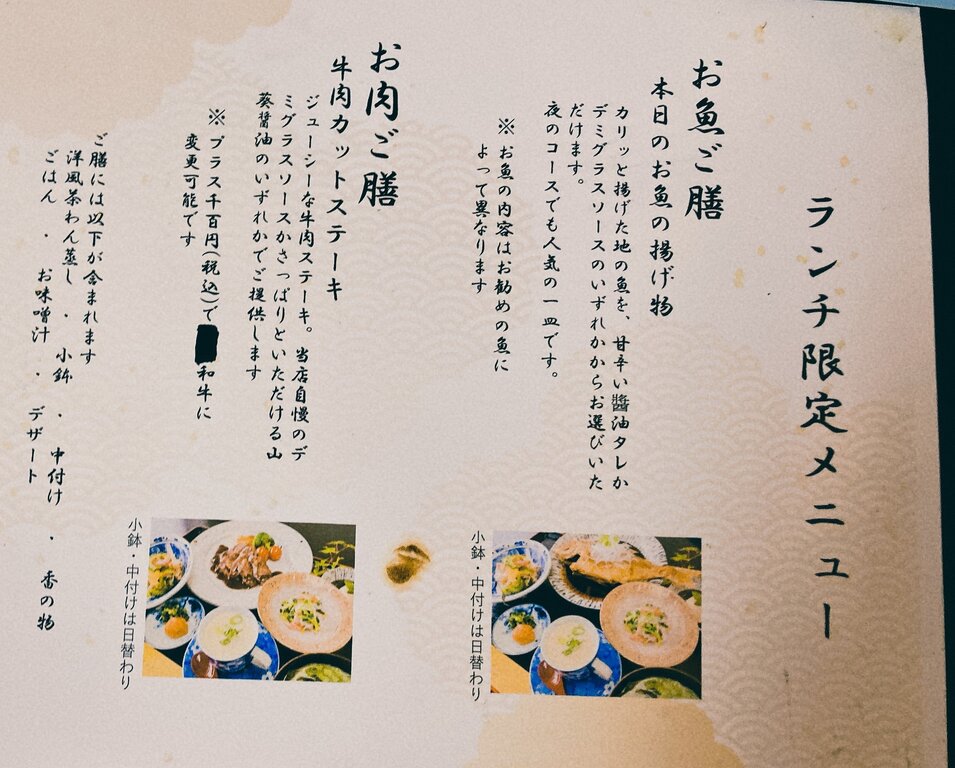 ランチ限定メニュー
お魚ご膳
本日のお魚の揚げ物
カリッと揚げた地の魚を、甘辛い醬油タレか
デミグラスソースのいずれかからお選びいた
だけます。
夜のコースでも人気の一皿です。
※お魚の内容はお勧めの魚に
よって異なります
小鉢・中付けは日替わり
お肉ご膳
牛肉カットステーキ
ジューシーな牛肉ステーキ。当店自慢のデ
ミグラスソースかさっぱりといただける山
葵醬油のいずれかでご提供します
※プラス千百円(税込)で
和牛に
変更可能です
小鉢・中付けは日替わり
ご膳には以下が含まれます
洋風茶わん蒸し・小鉢・中付け・香の物
ごはん・お味噌汁・デザート